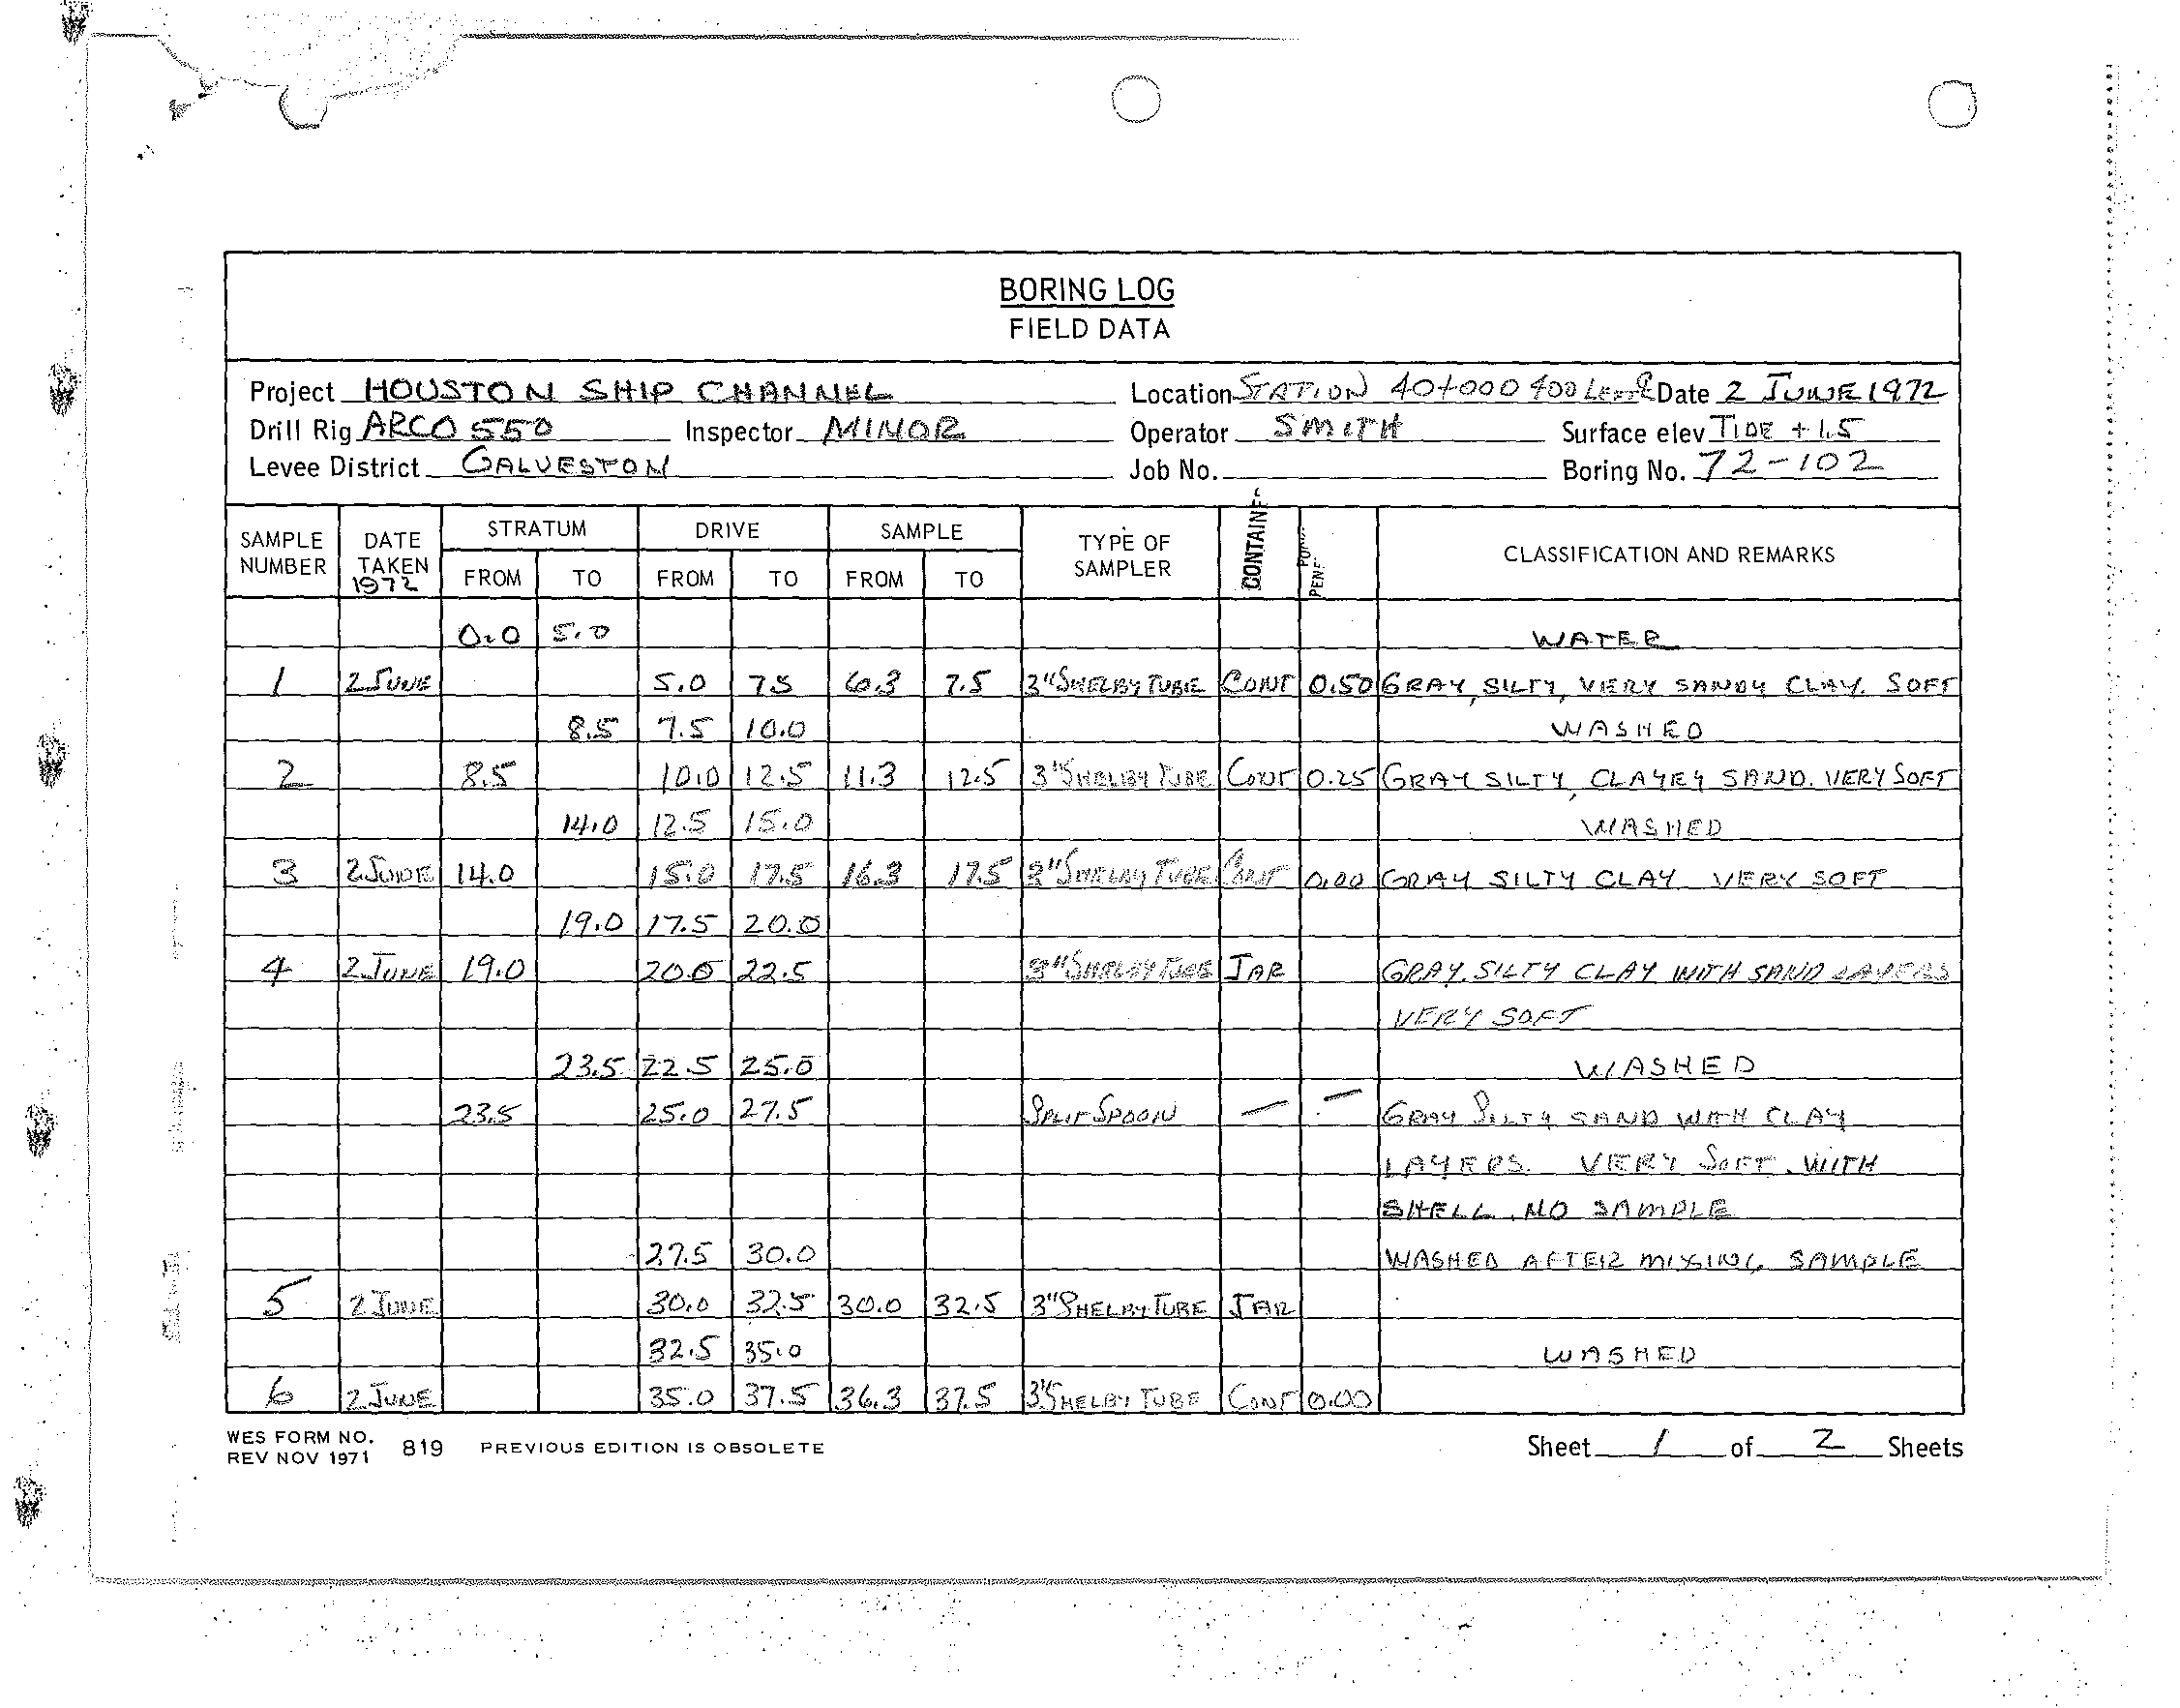 BORING LOG
FIELD DATA
Project HOUSTON SHIP CHANNEL Location STATION 40+000 400 Date 2 JUNE 1972
Drill Rig ARCO 550 Inspector MINOR Operator SMITH Surface elev TIDE + 1.5
Levee District GALVESTON Job No. Boring No. 72-102
SAMPLE NUMBER DATE TAKEN 1972 STRATUM FROM TO DRIVE FROM TO SAMPLE FROM TO TYPE OF SAMPLER CONTAINE PENE CLASSIFICATION AND REMARKS
0.0 5.0 WATER
1 2 JUNE 5.0 7.5 6.3 7.5 3" SHELBY TUBE CONT 0.50 GRAY, SILTY, VERY SANDY CLAY. SOFT
8.5 7.5 10.0 WASHED
2 8.5 10.0 12.5 11.3 12.5 3" SHELBY TUBE CONT 0.25 GRAY SILTY, CLAYEY SAND. VERY SOFT
14.0 12.5 15.0 WASHED
3 2 JUNE 14.0 15.0 17.5 16.3 17.5 3" SHELBY TUBE CONT 0.00 GRAY SILTY CLAY VERY SOFT
19.0 17.5 20.0
4 2 JUNE 19.0 20.0 22.5 3" SHELBY TUBE JAR GRAY, SILTY CLAY WITH SAND LAYERS
VERY SOFT
23.5 22.5 25.0 WASHED
23.5 25.0 27.5 SPLIT SPOON — — GRAY SILTY SAND WITH CLAY
LAYERS. VERY SOFT. WITH
SHELL. NO SAMPLE
27.5 30.0 WASHED AFTER MIXING SAMPLE
5 2 JUNE 30.0 32.5 30.0 32.5 3" SHELBY TUBE JAR
32.5 35.0 WASHED
6 2 JUNE 35.0 37.5 36.3 37.5 3" SHELBY TUBE CONT 0.00
WES FORM NO. 819 PREVIOUS EDITION IS OBSOLETE Sheet 1 of 2 Sheets
REV NOV 1971